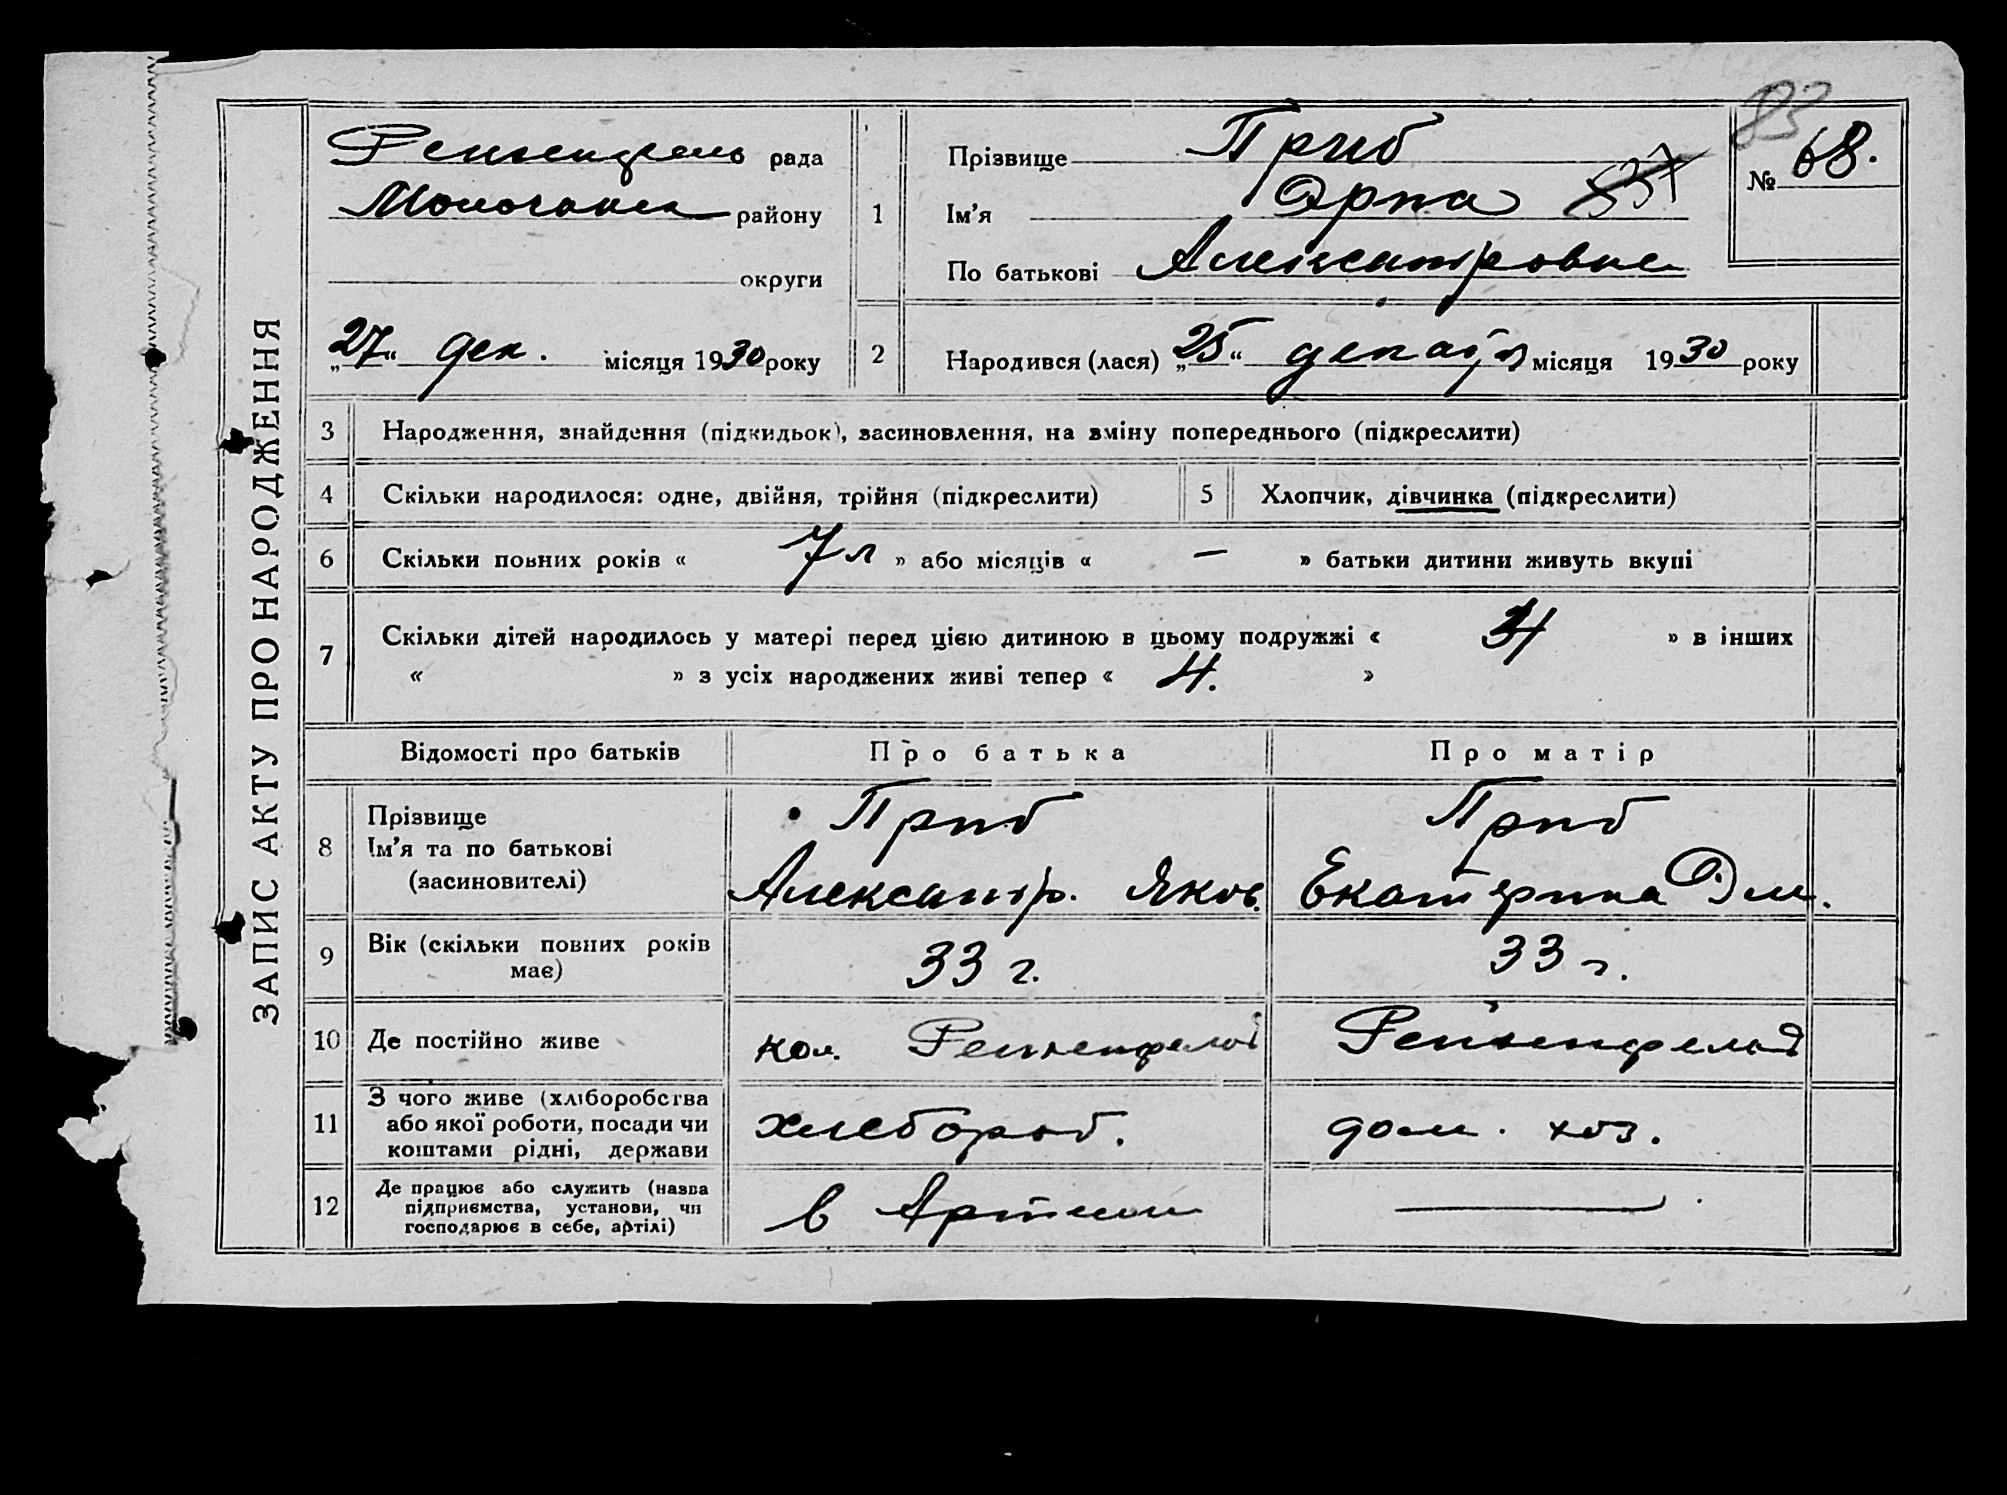 ЗАПИС АКТУ ПРО НАРОДЖЕННЯ
83
рада
району
округи
„27“ дек. місяця 1930 року
1
Прізвище Приб
Ім’я Эрна 837
По батькові Александровна
№ 68.
2
Народився (лася) „25“ декабря місяця 1930 року
3 Народження, знайдення (підкидьок), засиновлення, на зміну попереднього (підкреслити)
4 Скільки народилося: одне, двійня, трійня (підкреслити)
5 Хлопчик, дівчинка (підкреслити)
6 Скільки повних років « 7 л » або місяців « — » батьки дитини живуть вкупі
7 Скільки дітей народилось у матері перед цією дитиною в цьому подружжі « » в інших
« » з усіх народжених живі тепер « 4. »
Відомості про батьків Про батька Про матір
8 Прізвище
Ім’я та по батькові
(засиновителі)
Приб
Александр. Яков.
Приб
Екатерина Эм.
9 Вік (скільки повних років
має)
33 г.
33 г.
10 Де постійно живе
кол. Рейненфельд
Рейненфельд
11 З чого живе (хліборобства
або якої роботи, посади чи
коштами рідні, держави
хлебороб.
дом. хоз.
12 Де працює або служить (назва
підприємства, установи, чи
господарює в себе, артілі)
в Артели
—